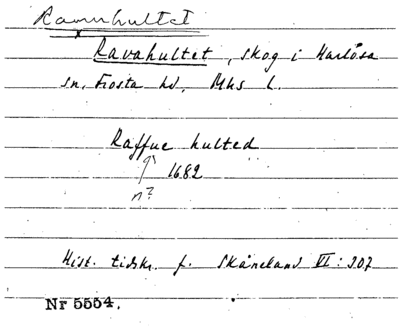 Ravnhultet
Ravahultet, skog i Harlösa
sn, Frosta hd, Mhs l.
Raffue hulted
1682
n?
Hist. tidskr. f. Skåneland VI: 307
Nr 5554.